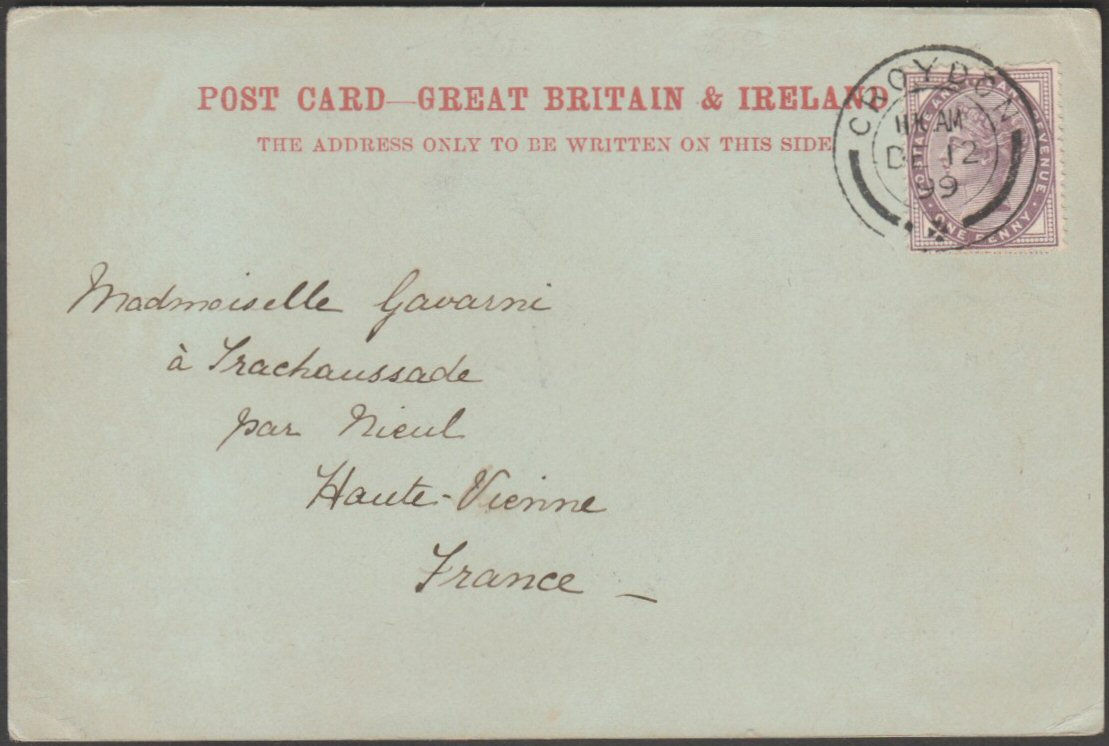 POST CARD—GREAT BRITAIN & IRELAND
THE ADDRESS ONLY TO BE WRITTEN ON THIS SIDE
CROYDON
AM
DE 12
99
POSTAGE AND REVENUE
ONE PENNY
Madmoiselle Gavarni
à Trachaussade
par Nieul
Haute-Vienne
France